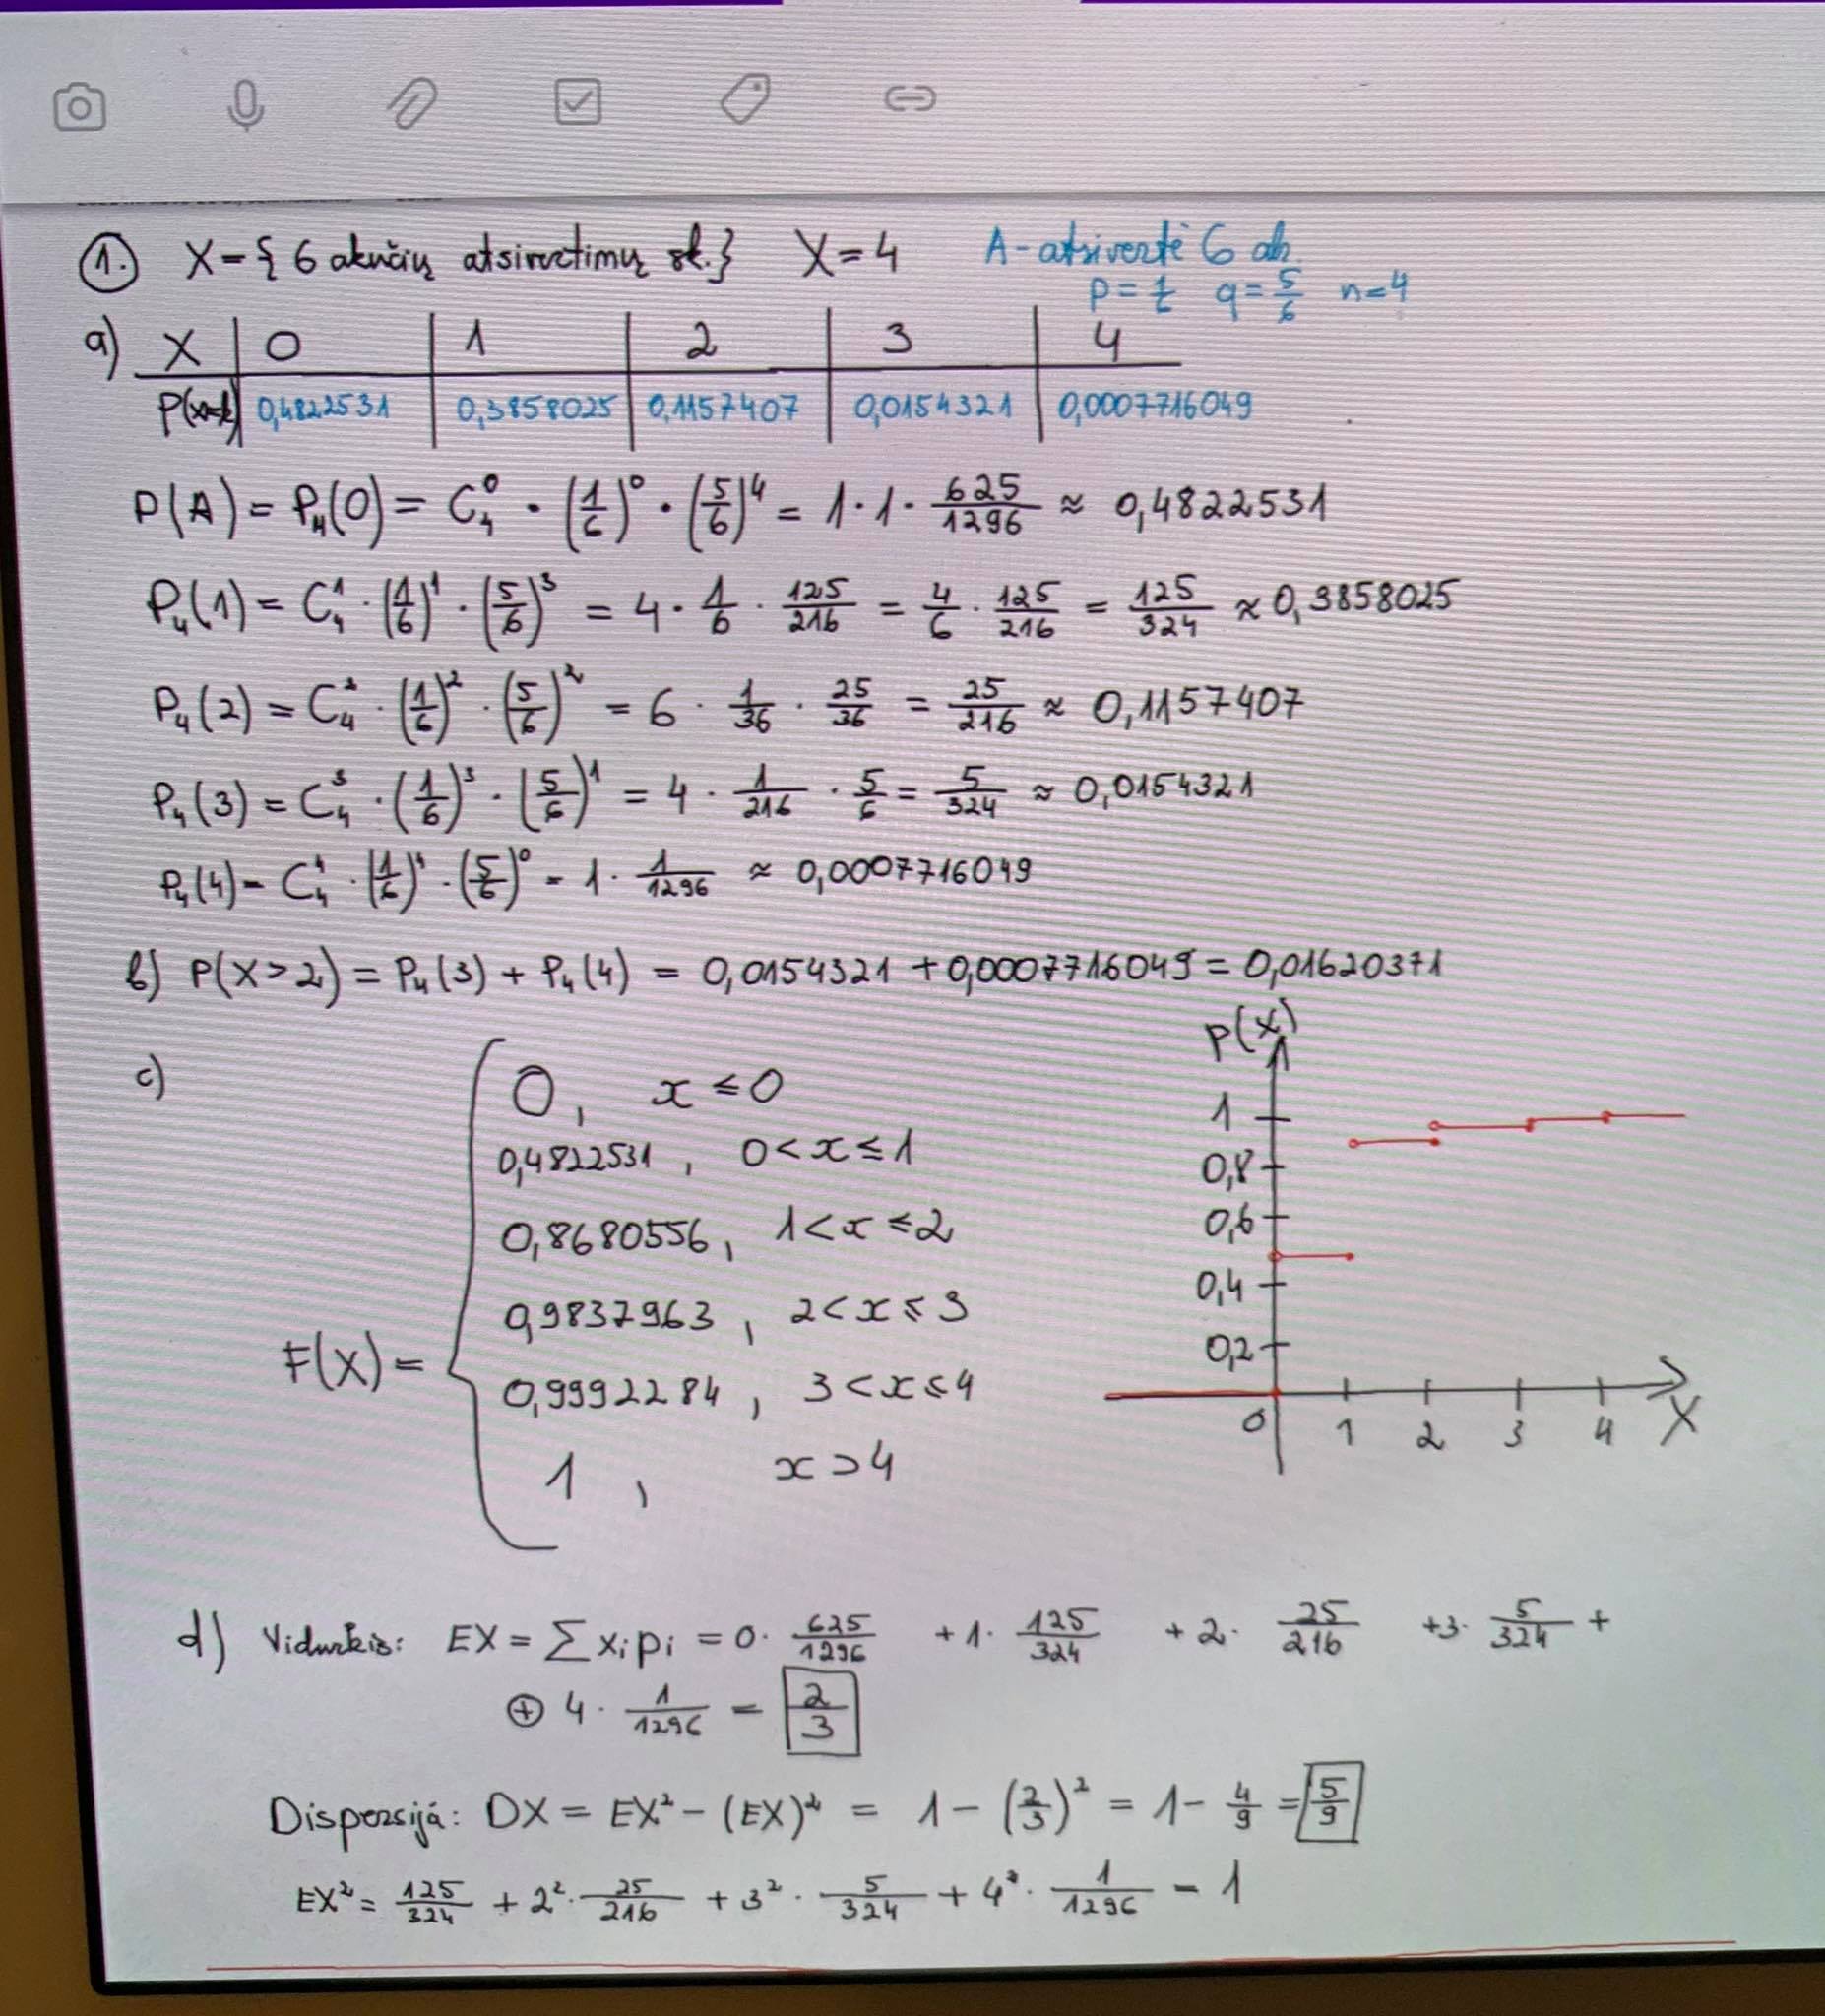 1. X-{6 akučių atsivertimų sk.} X=4 A-atsivertė 6 ak.
p=1/6 q=5/6 n=4
a) X | 0 | 1 | 2 | 3 | 4
P(x=k) | 0,4822531 | 0,3858025 | 0,1157407 | 0,0154321 | 0,0007716049
P(A) = P₄(0) = C₄⁰ · (1/6)⁰ · (5/6)⁴ = 1·1· 625/1296 ≈ 0,4822531
P₄(1) = C₄¹ · (1/6)¹ · (5/6)³ = 4 · 1/6 · 125/216 = 4/6 · 125/216 = 125/324 ≈ 0,3858025
P₄(2) = C₄² · (1/6)² · (5/6)² = 6 · 1/36 · 25/36 = 25/216 ≈ 0,1157407
P₄(3) = C₄³ · (1/6)³ · (5/6)¹ = 4 · 1/216 · 5/6 = 5/324 ≈ 0,0154321
P₄(4) = C₄⁴ · (1/6)⁴ · (5/6)⁰ = 1 · 1/1296 ≈ 0,0007716049
b) P(X>2) = P₄(3) + P₄(4) = 0,0154321 + 0,0007716049 = 0,01620371
c)
F(X) =
0, x ≤ 0
0,4822531, 0 < x ≤ 1
0,8680556, 1 < x ≤ 2
0,9837963, 2 < x ≤ 3
0,9992284, 3 < x ≤ 4
1, x > 4
P(X)
1
0,8
0,6
0,4
0,2
0 1 2 3 4 X
d) Vidurkis: EX = ∑ xᵢ pᵢ = 0 · 625/1296 + 1 · 125/324 + 2 · 25/216 + 3 · 5/324 +
⊕ 4 · 1/1296 = 2/3
Dispersija: DX = EX² - (EX)² = 1 - (2/3)² = 1 - 4/9 = 5/9
EX² = 125/324 + 2² · 25/216 + 3² · 5/324 + 4² · 1/1296 = 1